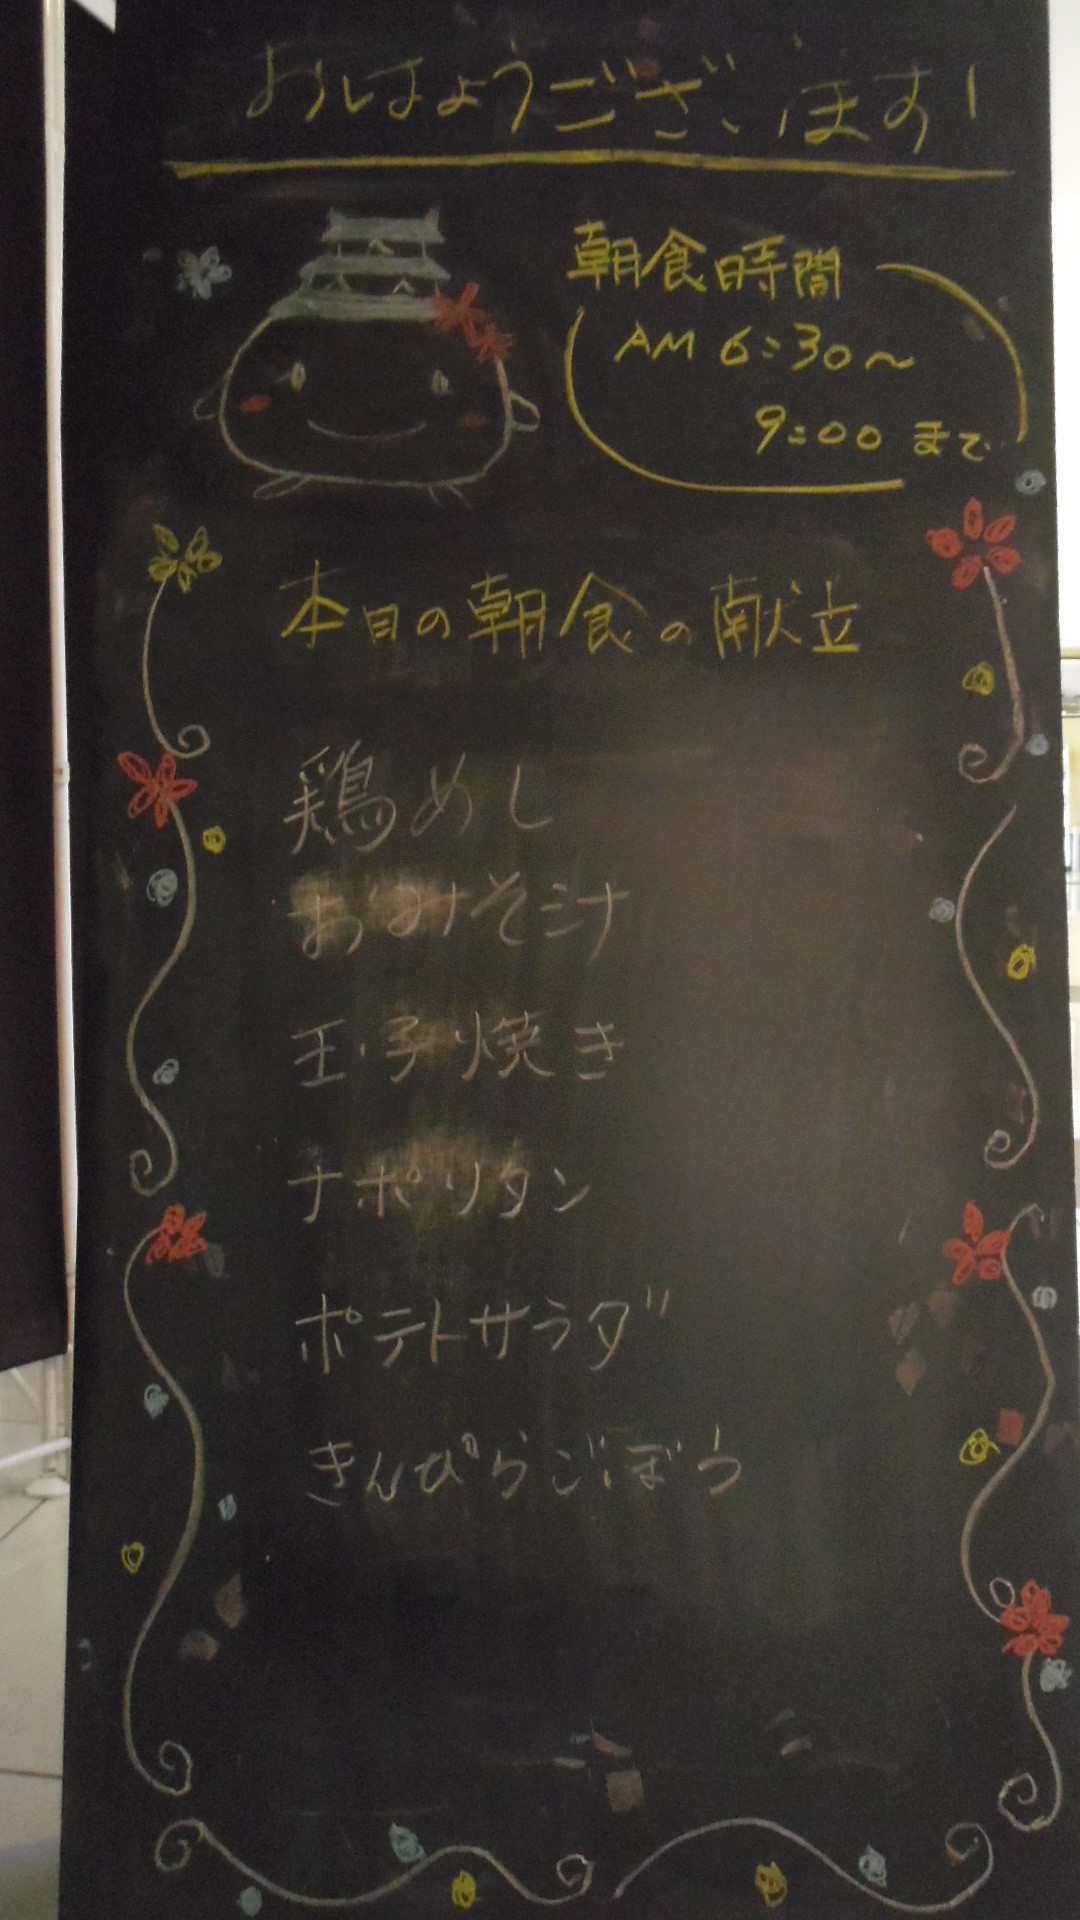 おはようございます!
朝食時間
AM 6:30～
9:00 まで
本日の朝食の献立
鶏めし
おみそ汁
玉子焼き
ナポリタン
ポテトサラダ
きんぴらごぼう